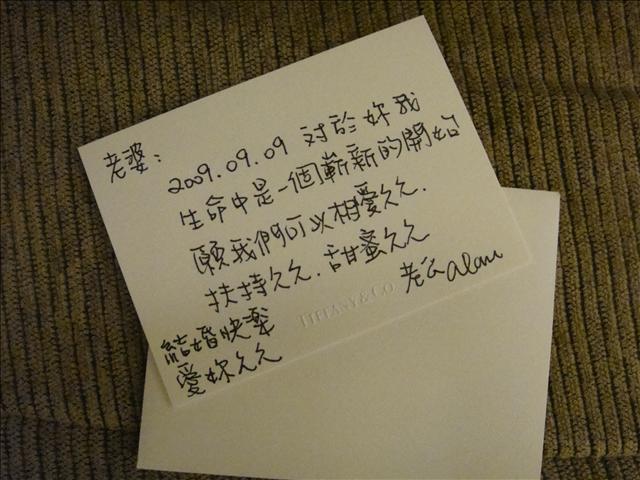 老婆：
2009.09.09 对於妳我
生命中是一個嶄新的開始
願我們可以相愛久久.
扶持久久.甜蜜久久
老公 Alan
TIFFANY & CO.
結婚快樂
愛妳久久